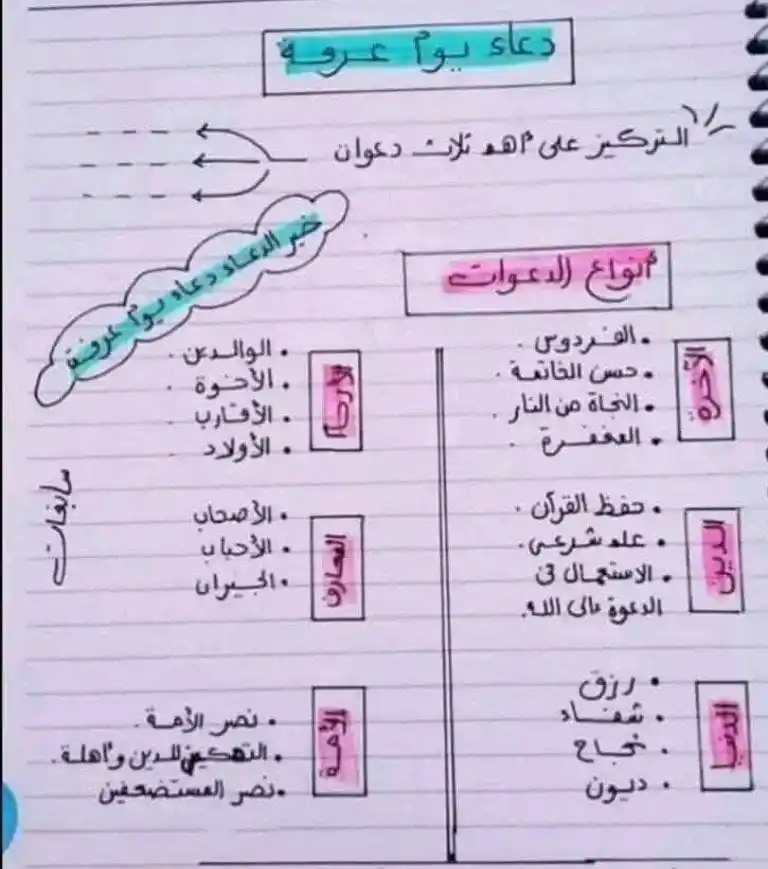 دعاء يوم عرفة
التركيز على أهم ثلاث دعوات
خير الدعاء دعاء يوم عرفة
أنواع الدعوات
الآخرة
• الفردوس.
• حسن الخاتمة.
• النجاة من النار.
• المغفرة.
الدين
• حفظ القرآن.
• علم شرعي.
• الاستعمال في
الدعوة إلى الله.
الدنيا
• رزق
• شفاء
• نجاح
• ديون
الأرحام
• الوالدين.
• الأخوة.
• الأقارب.
• الأولاد.
المعارف
• الأصحاب
• الأحباب
• الجيران
الأمة
• نصر الأمة.
• التمكين للدين وأهلة.
• نصر المستضعفين
سابغات